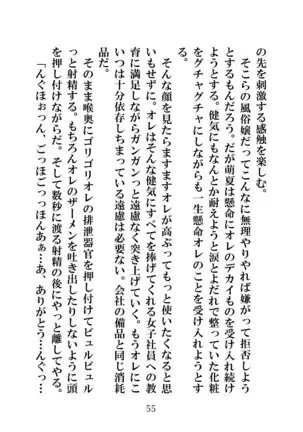 の先を刺激する感触を楽しむ。
そこらの風俗嬢だってこんなに無理やりやれば嫌がって拒否しよう
とするもんだろう。だが萌夏は懸命にオレのデカイものを受け入れ続け
ようとする。健気にもなんとか耐えようと涙とよだれで整っていた化粧
をグチャグチャにしながらも一生懸命オレのことを受け入れようとす
る。
そんな顔を見たらますますオレが高ぶってもっと使いたくなると思
いもせずに。オレはそんな健気にすべてを捧げてくれる女子社員への教
育に満足しながらガンガンっと遠慮なく突き上げていく。もうオレにこ
いつは十分依存しちまっている遠慮は必要ない。会社の備品と同じ消耗
品だ。
そのまま喉奥にゴリゴリオレの排泄器官を押し付けてビュルビュル
っと射精する。もちろんオレのザーメンを吐き出したりしないように頭
を押し付けながらだ。そして数秒に渡る射精の後にやっと離してやる。
「んぐほぉっん、ごっほごっっほんあぁ…あ、ありがとう…んぐっ…
55